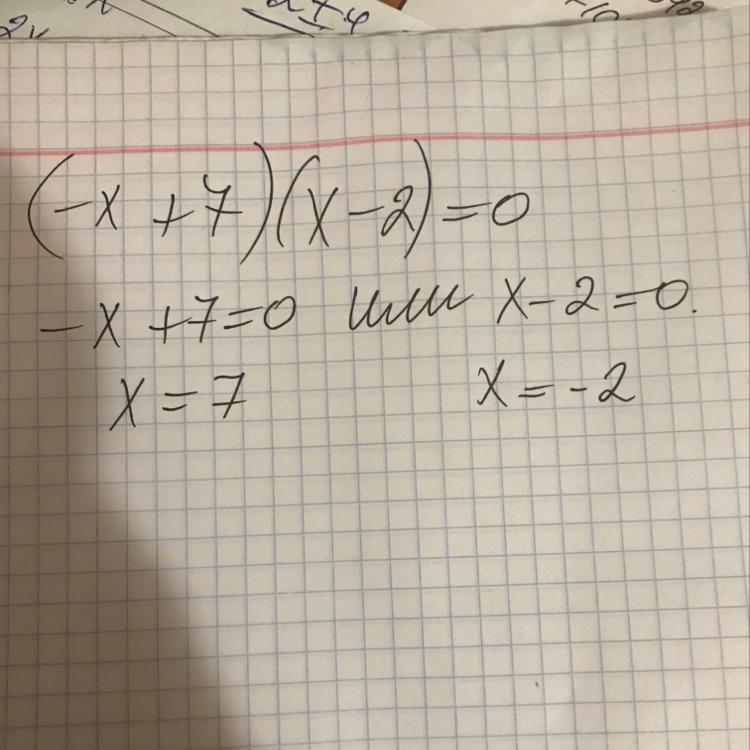 (-x + 7)(x - 2) = 0
-x + 7 = 0 или x - 2 = 0.
x = 7 x = -2